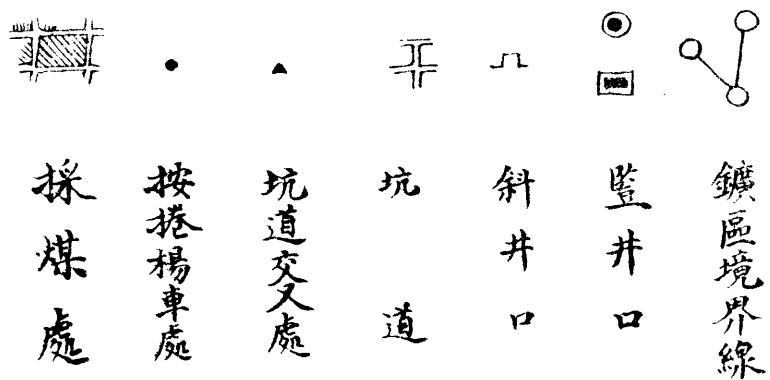 鑛區境界線
竪井口
斜井口
坑道
坑道交叉處
按捲楊車處
採煤處